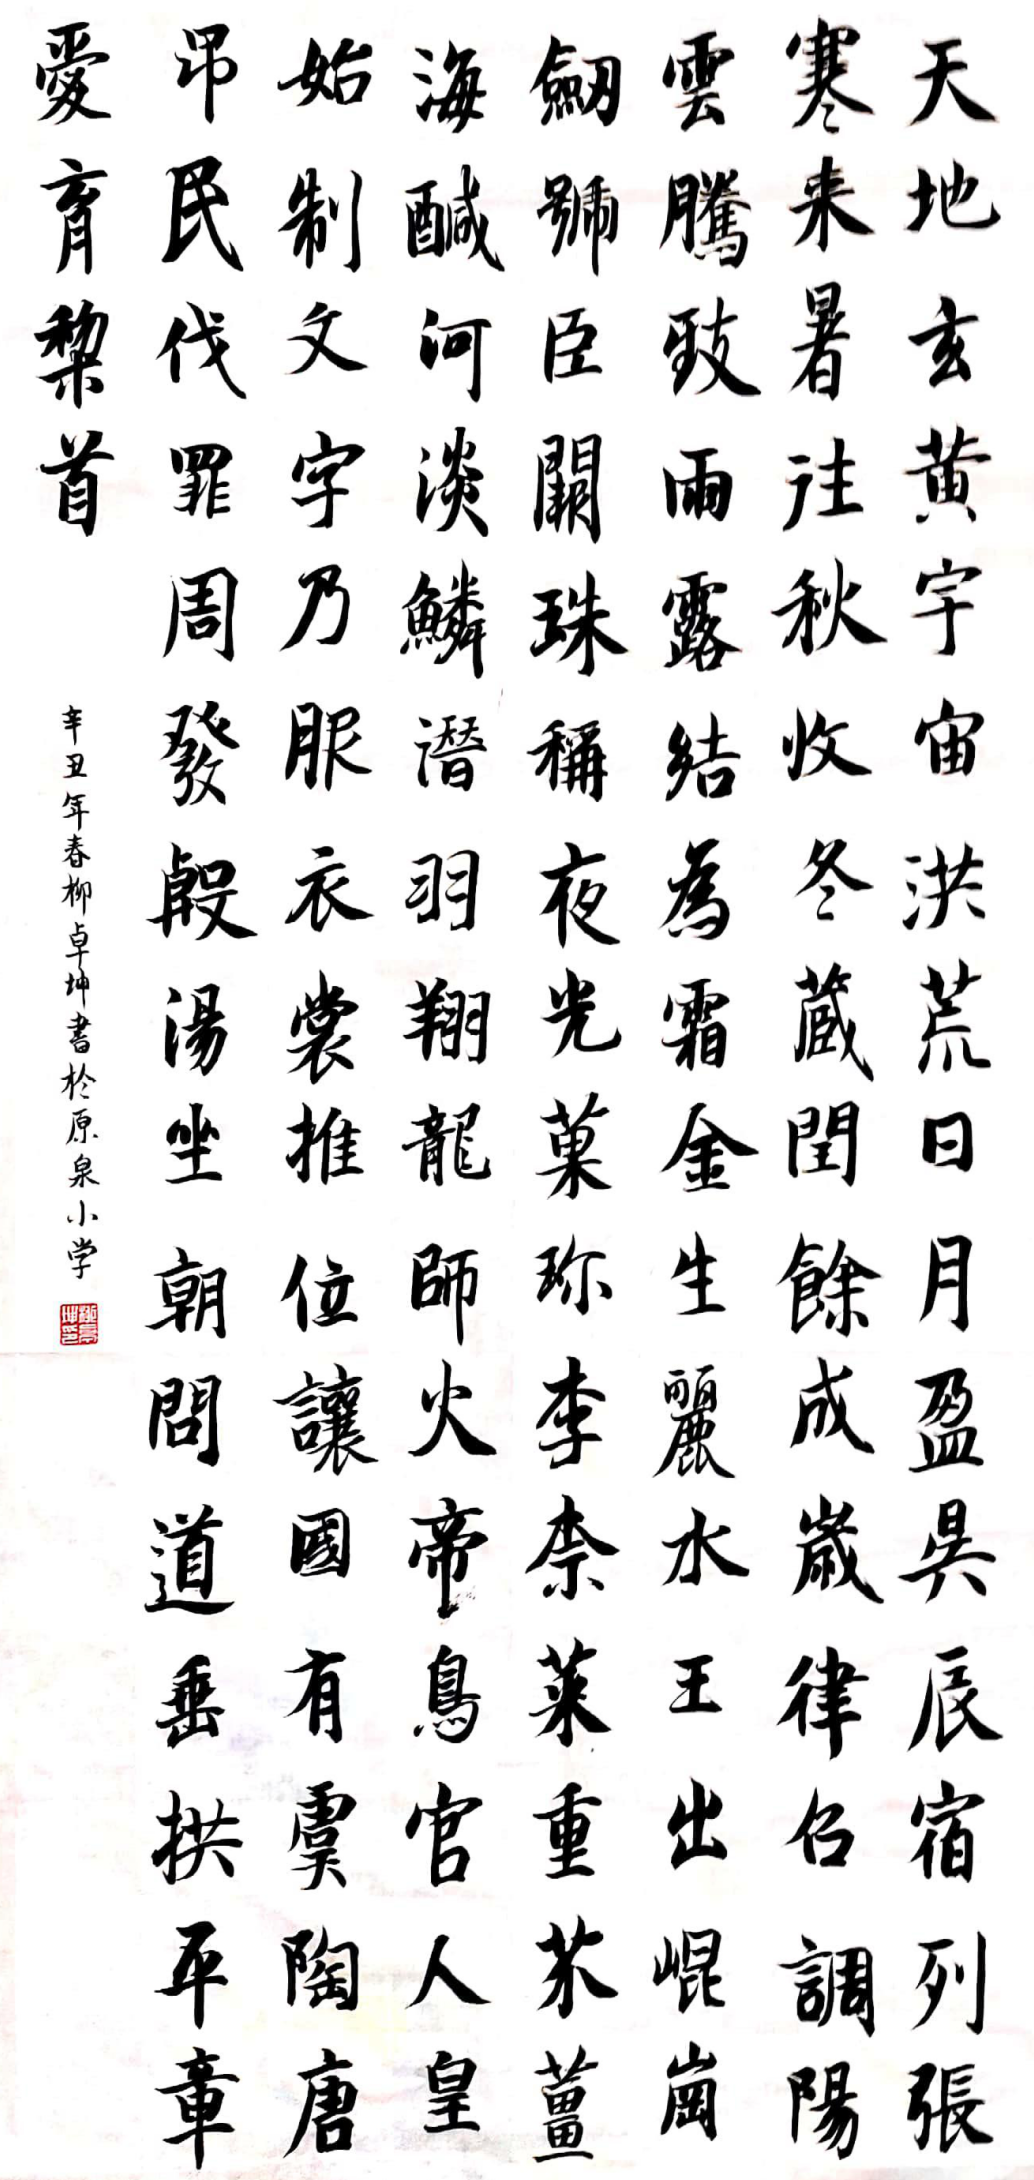 天地玄黄宇宙洪荒日月盈昃辰宿列張
寒来暑往秋收冬蔵閏餘成歲律吕調陽
雲騰致雨露結為霜金生麗水玉出崐崗
劒號臣闕珠稱夜光菓珎李柰菜重芥薑
海醎河淡鱗潛羽翔龍師火帝鳥官人皇
始制文字乃服衣裳推位讓國有虞陶唐
弔民伐罪周發殷湯坐朝問道垂拱平章
愛育黎首
辛丑年春柳卓坤書於原泉小学